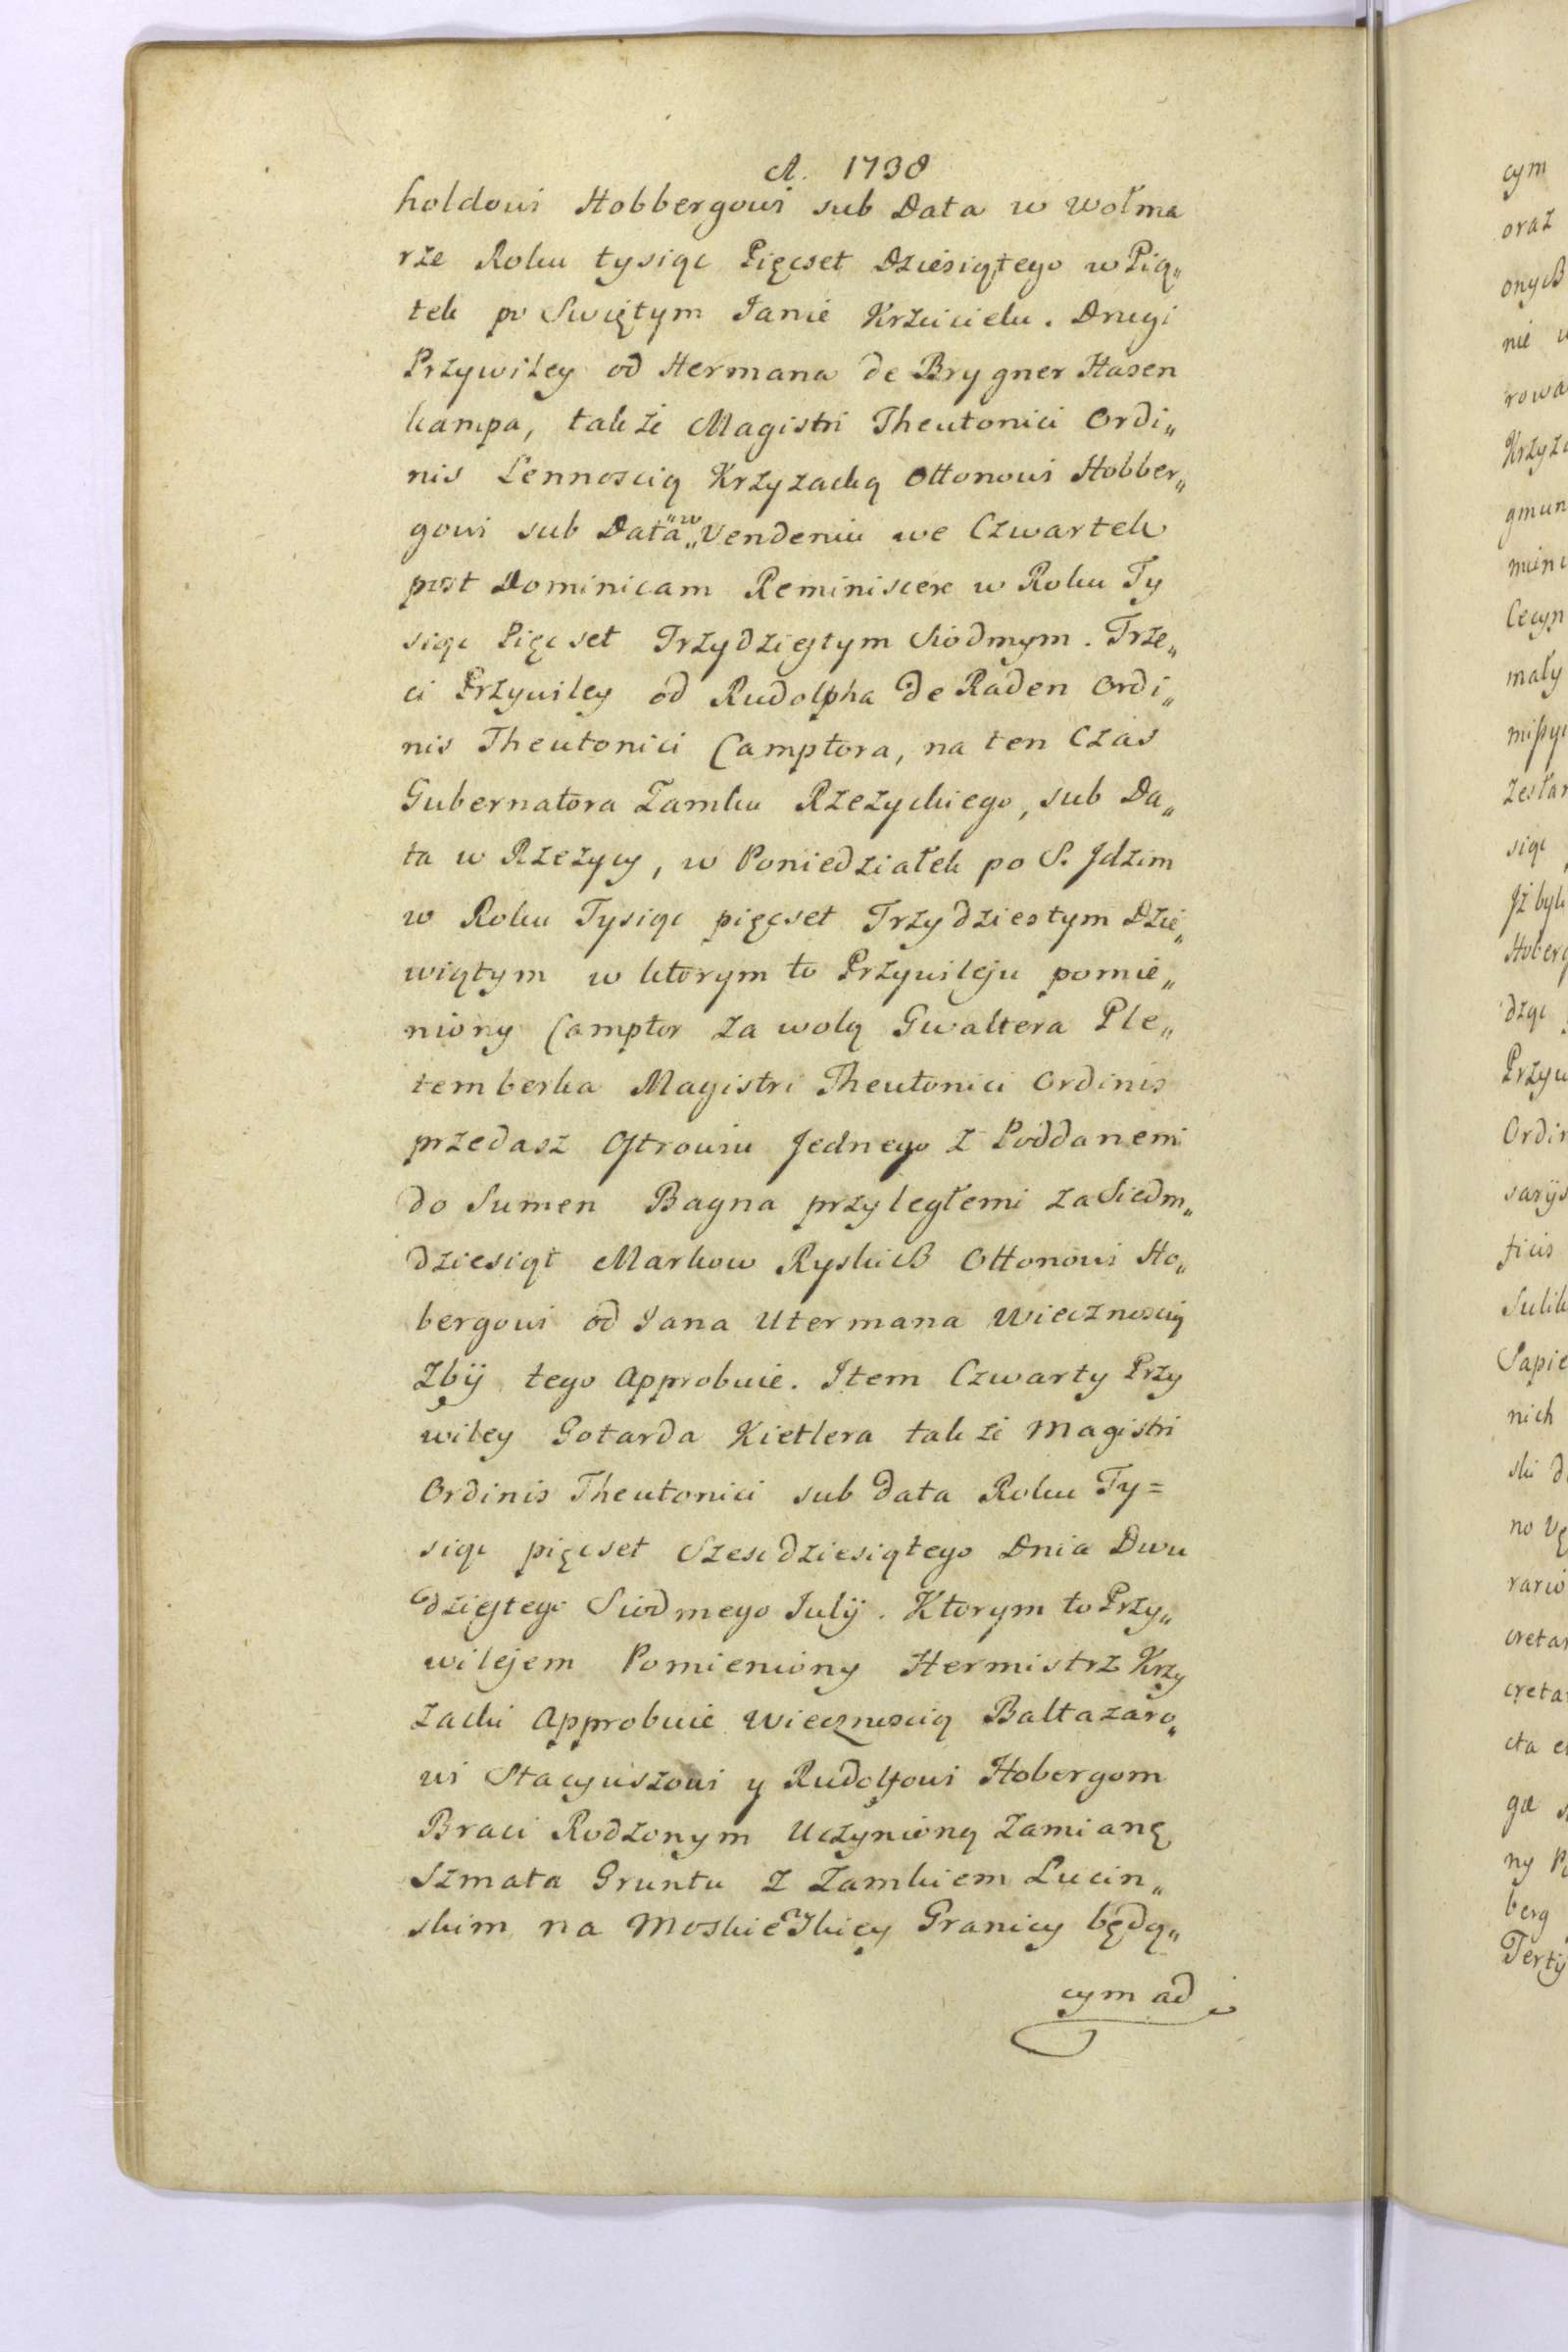 A. 1738
holdowi Hobbergowi sub Data w Wołma
rze Roku tysiąc Pięcset Dziesiątego w Pią„
tek po Swiętym Janie Krzcicielu. Drugi
Przywiley od Hermana de Brygner Hasen
kampa, takze Magistri Theutonici Ordi„
nis Lennoscią Krzyzacką Ottonowi Hobber„
gowi sub Data „w„ Vendeniu we Czwartek
post Dominicam Reminiscere w Roku Ty
siąc Pięcset Trzydziestym Siodmym. Trze„
ci Przywiley od Rudolpha de Raden Ordi„
nis Theutonici Camptora, na ten Czas
Gubernatora Zamku Rzezyckiego, sub Da„
ta w Rzezycy, w Poniedziałek po S. Jdzim
w Roku Tysiąc pięcset Trzydziestym Dzie„
wiątym w ktorym to Przywileju pomie„
niony Camptor za wolą Gwaltera Ple„
temberka Magistri Theutonici Ordinis
przedasz Ostrowiu Jednego z Poddanemi
do Sumen Bagna przyległemi za Siedm„
dziesiąt Markow Ryskich Ottonowi Ho„
bergowi od Jana Utermana Wiecznoscią
Zbÿ tego Approbuie. Item Czwarty Przy
wiley Gotarda Kietlera takze Magistri
Ordinis Theutonici sub data Roku Ty=
siąc pięcset Szescdziesiątego Dnia Dwu
dziestego Siodmego Julÿ. Ktorym to Przy„
wilejem Pomieniony Hermistrz Krzy
zacki Approbuie Wiecznoscią Baltazaro„
wi Stacyuszowi y Rudolfowi Hobergom
Braci Rodzonym Uczynioną Zamianę
Szmata Gruntu z Zamkiem Lucin„
skim na Moskiewskiey Granicy będą„
cym ad
cym
oraz
onych
nie
rowa
Krzyza
gmun
Cecyn
mały
siąc
Hoberg
dząc
Przyw
Ordin
Sapie
nich
ski
cretar
creta
cta
ga
ny
berg
Tertÿ